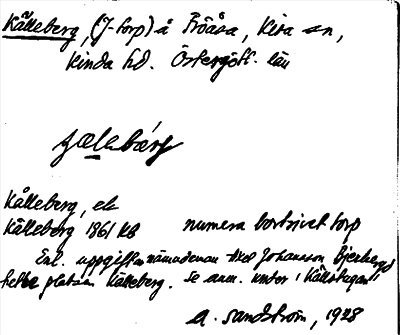 Kålleberg, (J-torp) å Fröåsa, Kisa sn,
Kinda hd. Östergötl. län
Kålleberg, el.
Källeberg 1861 KB numera bortrivet torp
Enl. uppgift nämndeman Axel Johansson Bjerkeryd
hette platsen Källeberg. Se anm. under
A. Sandström, 1928